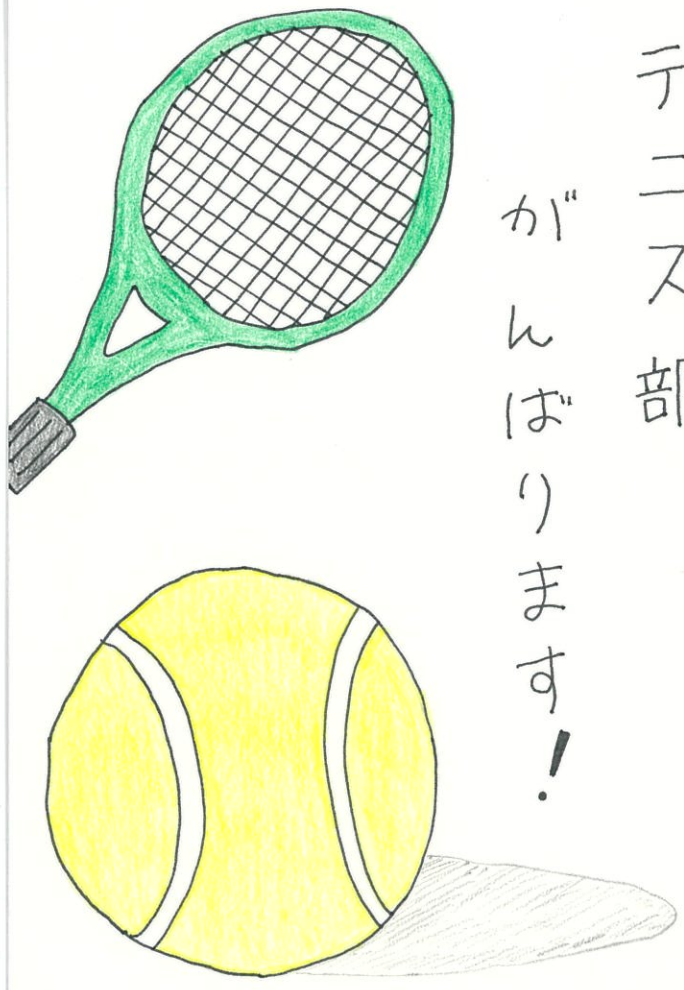 テニス部
がんばります!